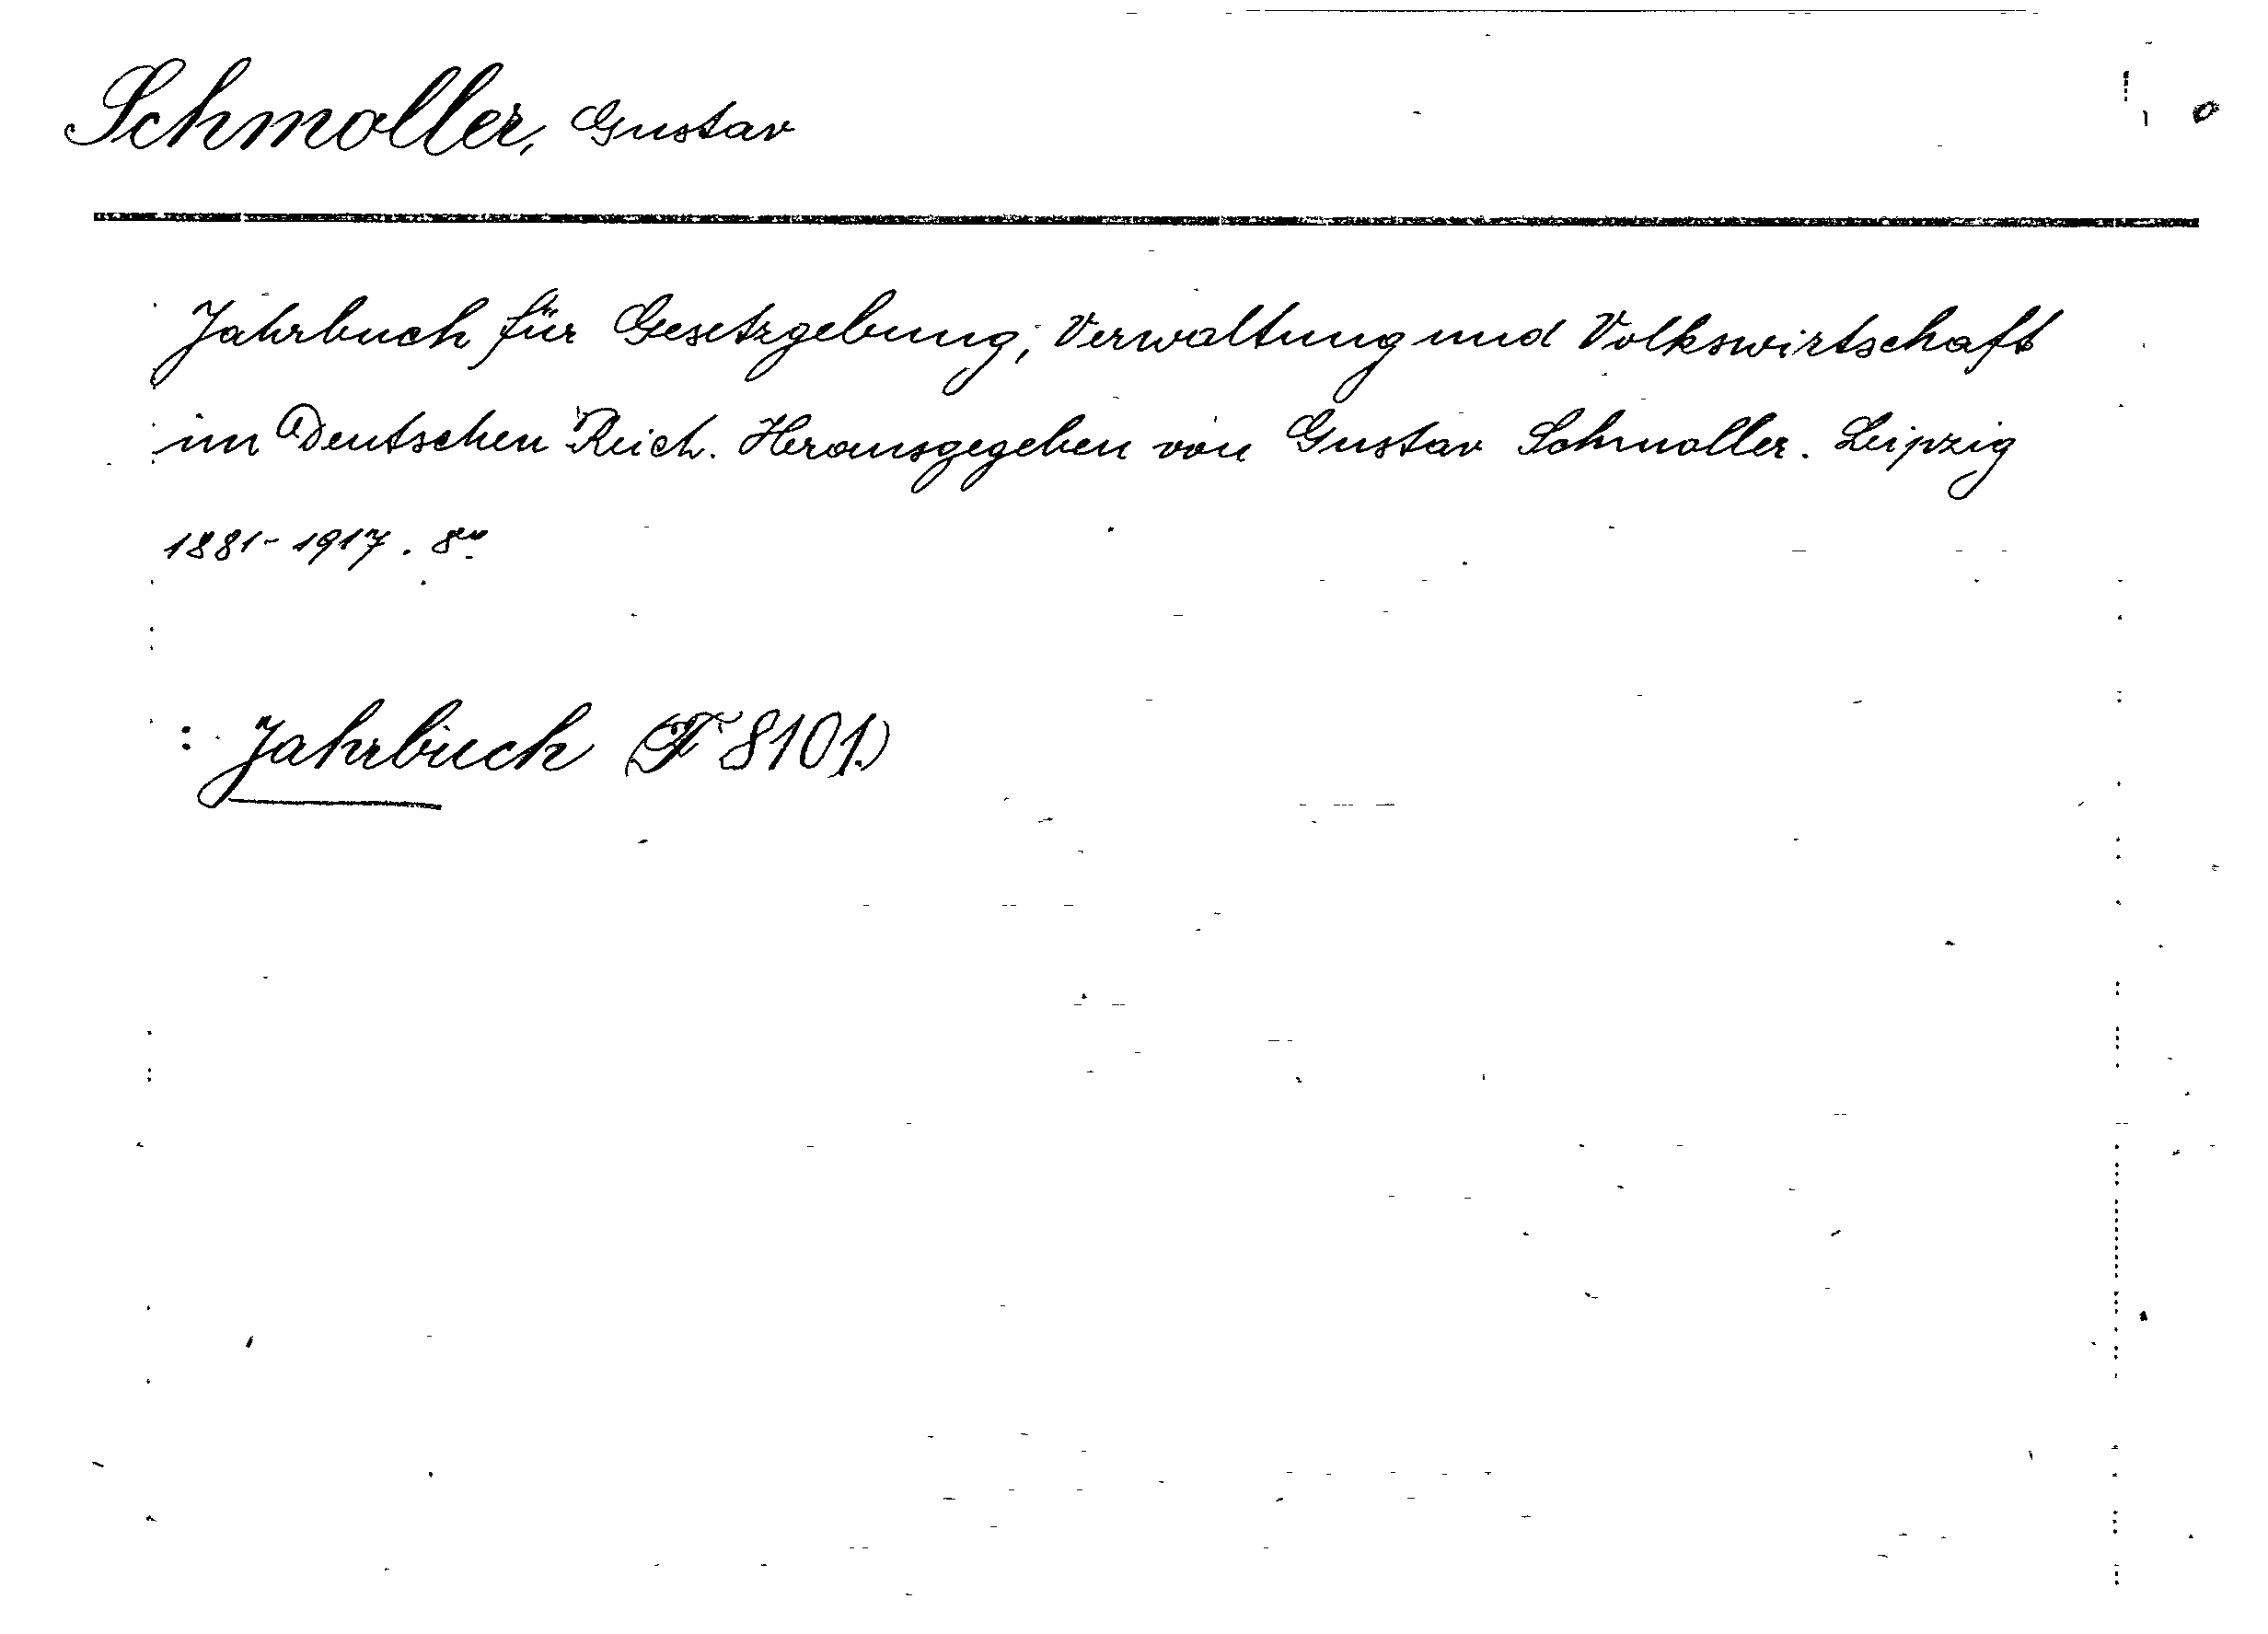 Schmoller, Gustav
Jahrbuch für Gesetzgebung, Verwaltung und Volkswirtschaft
im Deutschen Reich. Herausgegeben von Gustav Schmoller. Leipzig
1881-1917. 8vo
: Jahrbuch (F 8101.)